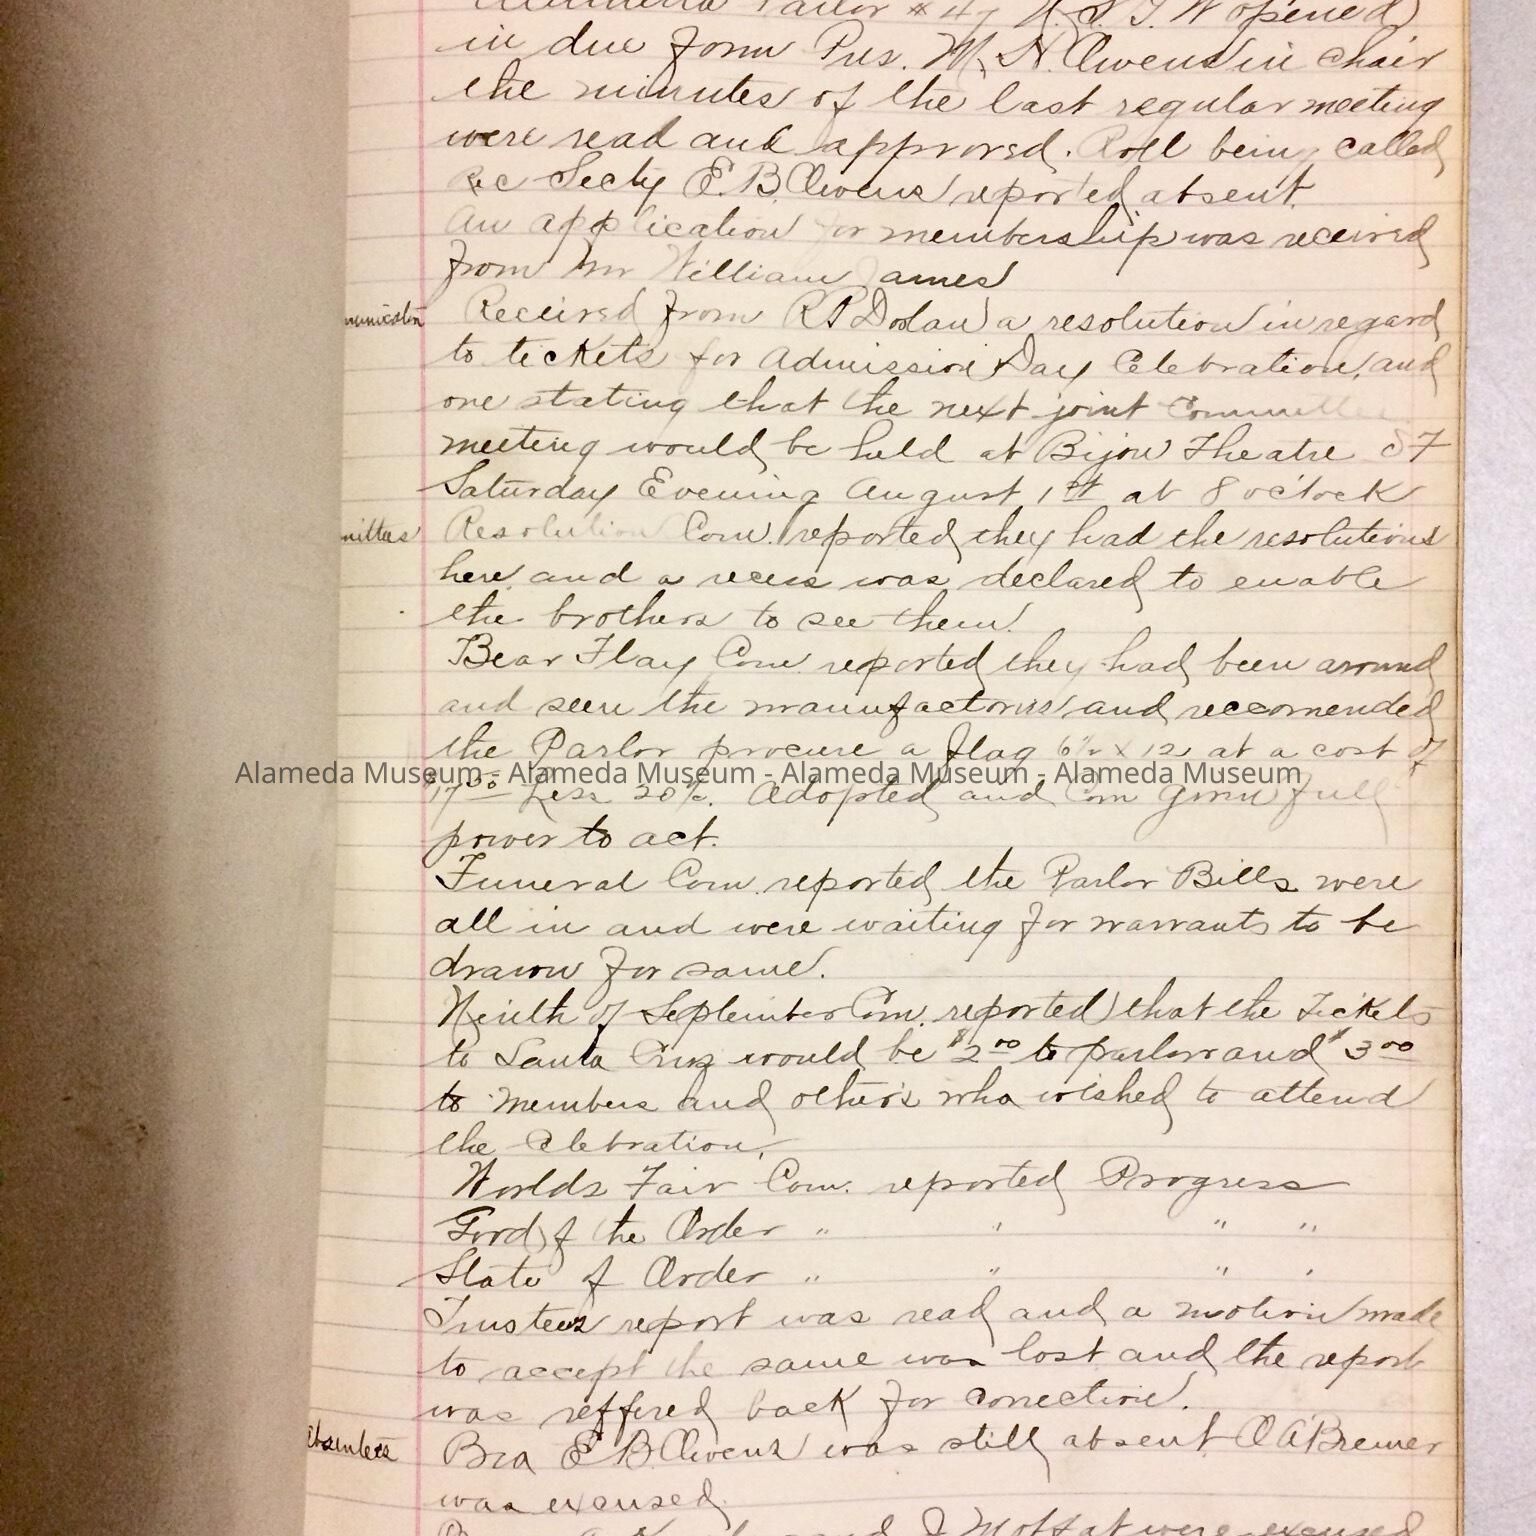 Alameda Parlor #47 N.S.G.W opened
in due form Pres. M. N. Owens in chair
the minutes of the last regular meeting
were read and approved. Roll being called
Rec Secty E.B. Owens reported absent.
An application for membership was received
from Mr William James
Received from R P Doolan a resolution in regard
to tickets for Admission Day Celebration, and
one stating that the next joint Committee
meeting would be held at Bijou Theatre S F
Saturday Evening August 1st at 8 o'clock
mittees Resolution Com. reported they had the resolutions
here and a recess was declared to enable
the brothers to see them.
Bear Flag Com. reported they had been around
and seen the manufactories and reccomended
the Parlor procure a flag 6½ x 12 at a cost of
Alameda Museum - Alameda Museum - Alameda Museum - Alameda Museum
17.50 Less 20%. Adopted and Com given full
power to act.
Funeral Com. reported the Parlor Bills were
all in and were waiting for warrants to be
drawn for same.
Ninth of September Com. reported that the Tickets
to Santa Cruz would be $2.00 to parlor and $3.00
to Members and others who wished to attend
the Celebration.
Worlds Fair Com. reported Progress
Good of the Order " " " "
State of Order " " " "
Trustees report was read and a motion made
to accept the same was lost and the report
was reffered back for correction.
Absentees Bro E B. Owens was still absent O A Bremer
was excused.
Moffat were excused